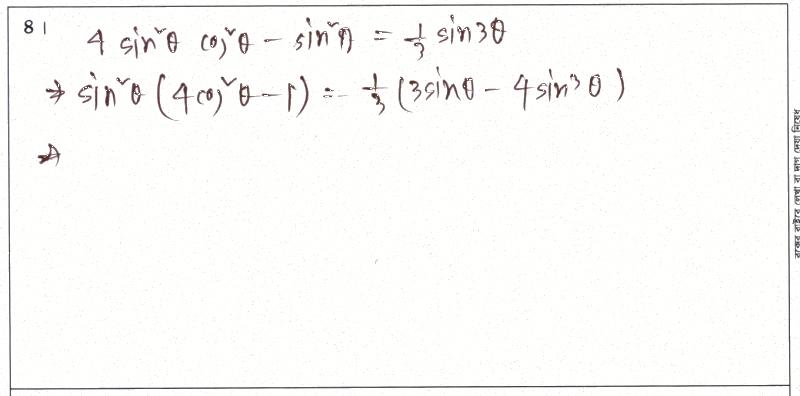 8 | 4 sin²θ cos²θ - sin²θ = 1/3 sin3θ
⇒ sin²θ (4cos²θ - 1) = 1/3 (3sinθ - 4sin³θ)
⇒
বক্সের বাইরে লেখা বা দাগ দেয়া নিষেধ